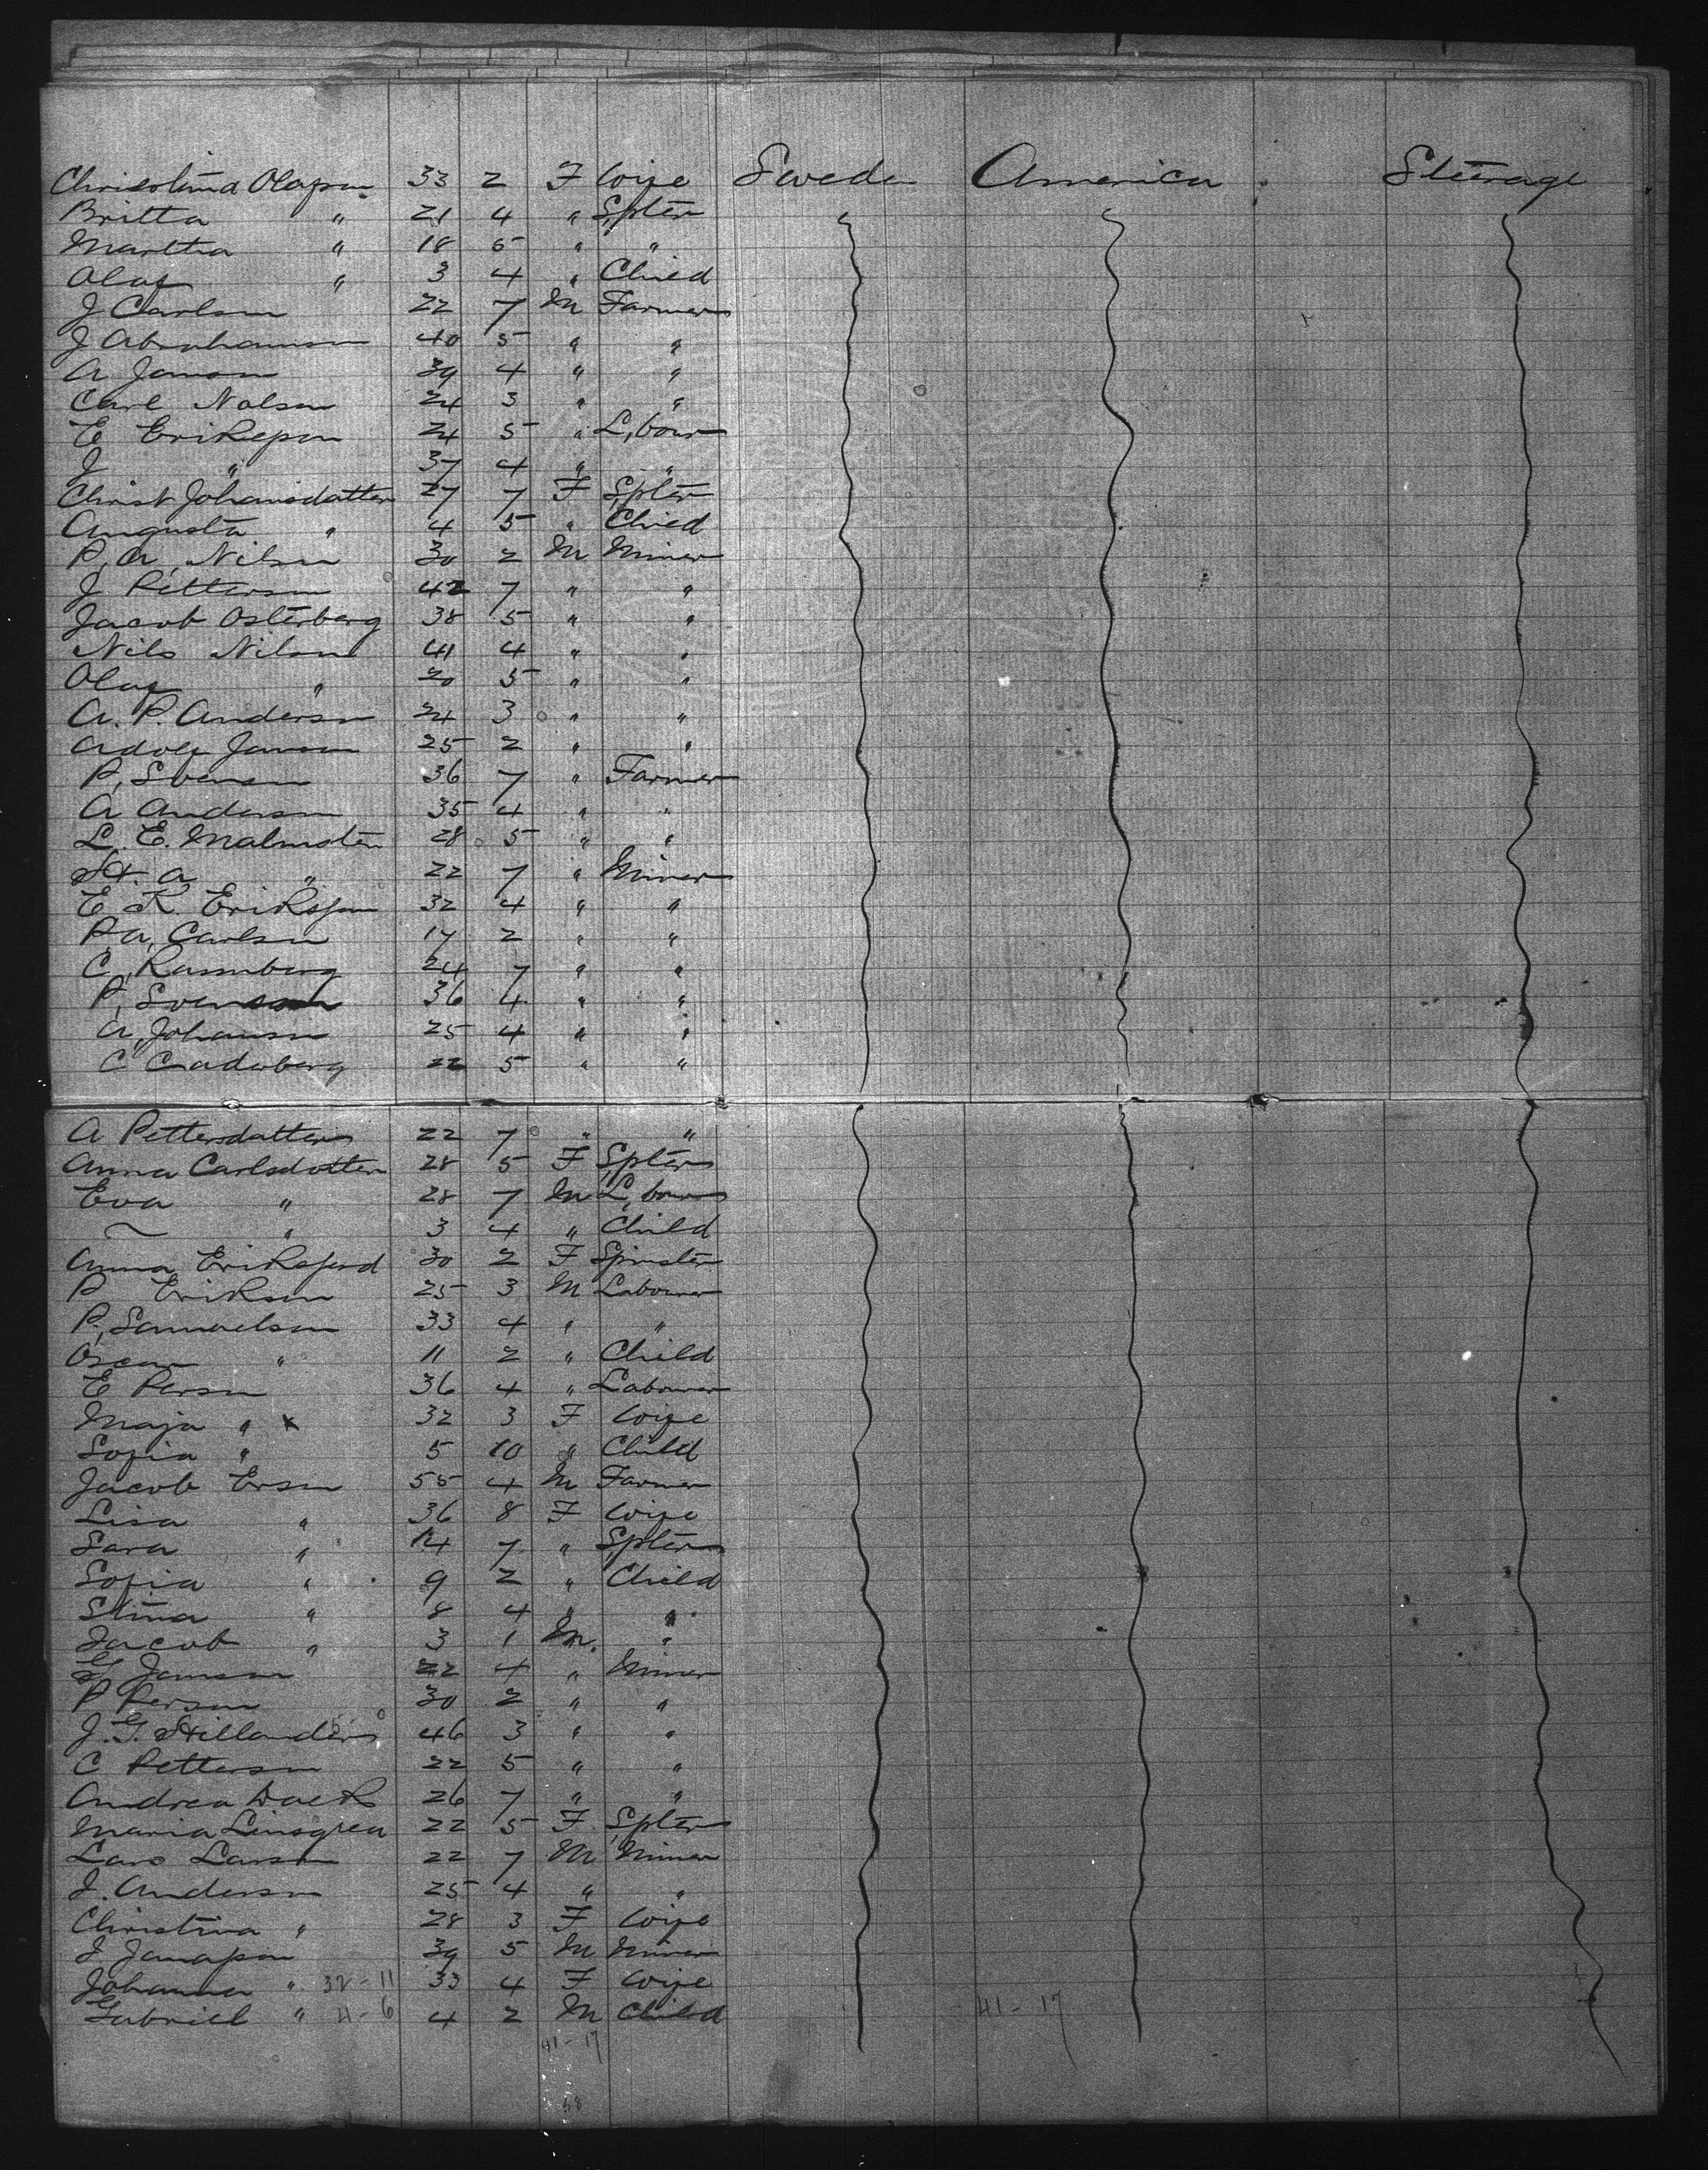 Christina Olafson 33 2 F Wife Sweden America Steerage
Britta " 21 4 " Spter
Martha " 18 5 " "
Olaf " 3 4 " Child
J Carlson 22 7 M Farmer
J Abrahamson 40 5 " "
A Janson 39 4 " "
Carl Nalson 24 3 " "
E Erikspon 24 5 " L,bour
J " 37 4 " "
Christ Johansdatter 27 7 F Spter
Augusta " 4 5 " Child
P, A, Nilson 30 2 M Miner
J Petterson 42 7 " "
Jacob Osterberg 38 5 " "
Nils Nilson 41 4 " "
Olaf " 20 5 " "
A. P. Anderson 24 3 " "
Adolf Janson 25 2 " "
P, Svenson 36 7 " Farmer
A Anderson 35 4 " "
L. E. Malmsten 28 5 " "
A " 22 7 " Miner
E K. Eriksson 32 4 " "
P, A, Carlson 17 2 " "
C, 24 7 " "
P, Svenson 36 4 " "
A, Johanson 25 4 " "
C 22 5 " "
A Pettersdatter 22 7 " "
Anna Carlsdotter 28 5 F Spter
Eva " 28 7 M L,bour
~ " 3 4 " Child
Anna 30 2 F Spinster
P Erikson 25 3 M Labourer
P, Samuelson 33 4 " "
Oscar " 11 2 " Child
E Person 36 4 " Labourer
Maja " x 32 3 F Wife
Sofia " 5 10 " Child
Jacob Erson 55 4 M Farmer
Lisa " 36 8 F Wife
Sara " 14 7 " Spter
Sofia " 9 2 " Child
Stina " 8 4 " "
Jacob " 3 1 M. "
G, Janson 22 4 " Miner
P Person 30 2 " "
J. G. 46 3 " "
C Petterson 22 5 " "
Andrea 26 7 " "
Maria Linsgren 22 5 F Spter
Lars Larson 22 7 M Miner
J. Anderson 25 4 " "
Christina " 28 3 F Wife
J Janapon 39 5 M Miner
Johanna " 32-11 33 4 F Wife
Gabriel " 11-6 4 2 M Child 41-17
41-17
58